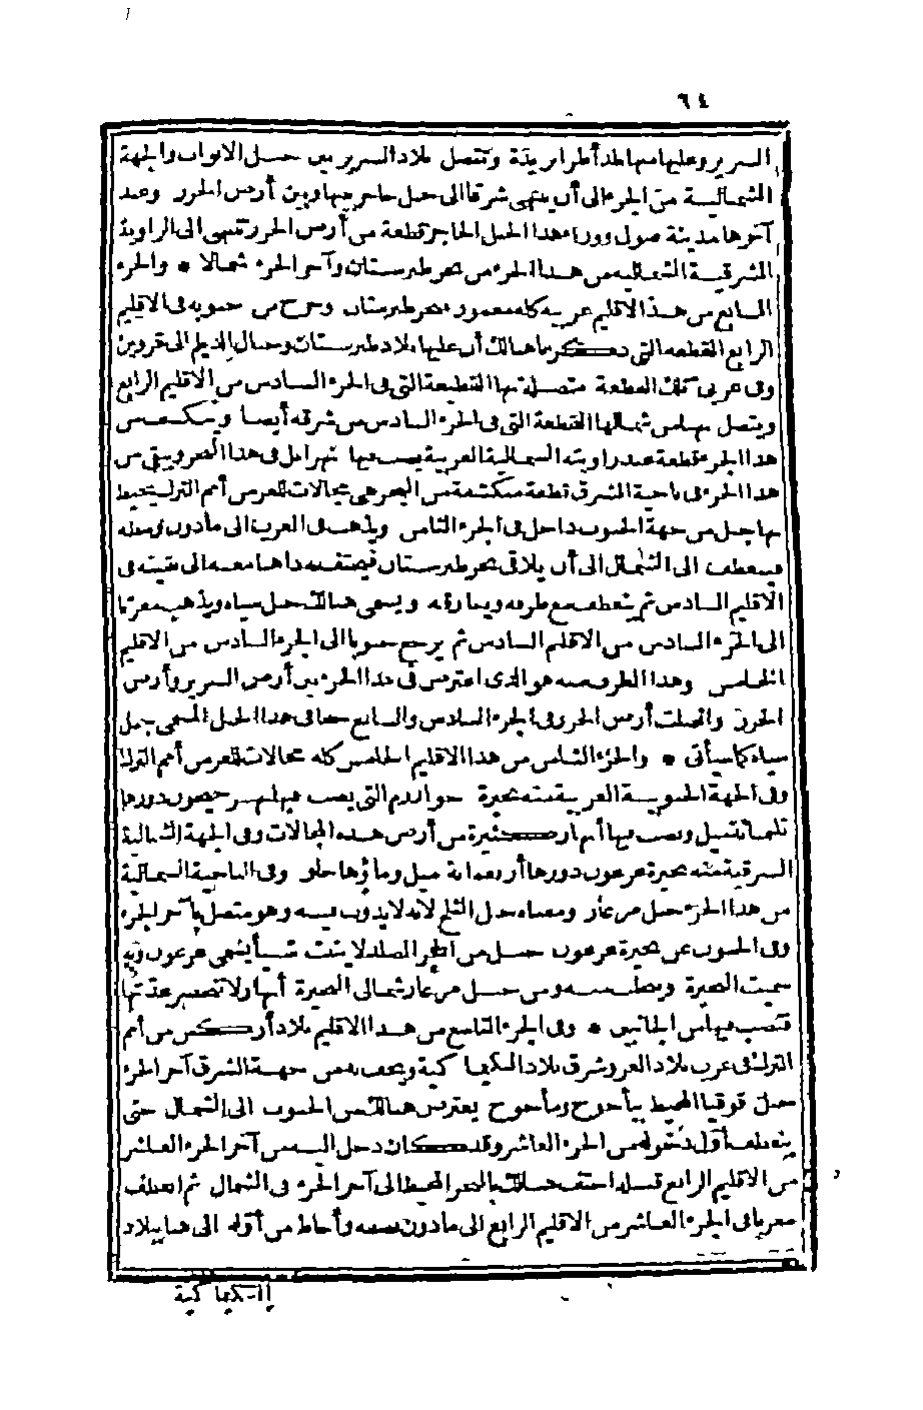 ٦٤
السرير وعليها منها هنالك أطرابزيدة وتتصل بلاد السرير بين جبل الابواب والجهة
الشمالية من الجزء الى أن ينتهى شرقا الى جبل حاجر بينها وبين أرض الخزر وعند
آخرها مدينة صول ووراء هذا الجبل الحاجر قطعة من أرض الخزر تنتهى الى الزاوية
الشرقية الشمالية من هذا الجزء من بحر طبرستان وآخر الجزء شمالا * والجزء
السابع من هذا الاقليم غربيه كله مغمور ببحر طبرستان وخرج من جنوبه فى الاقليم
الرابع القطعة التى ذكرنا هنالك أن عليها بلاد طبرستان وجبال الديلم الى قزوين
وفى غربى تلك القطعة متصلة بها القطيعة التى فى الجزء السادس من الاقليم الرابع
ويتصل بها من شمالها القطعة التى فى الجزء السادس من شرقه أيضا وينكشف من
هذا الجزء قطعة عند زاويته الشمالية الغربية يصب فيها نهر اثل فى هذا البحر ويبقى من
هذا الجزء فى ناحية الشرق قطعة منكشفة من البحر هى مجالات للغز من أمم الترك يحيط
بها جبل من جهة الجنوب داخل فى الجزء الثامن ويذهب فى الغرب الى مادون وسطه
فينعطف الى الشمال الى أن يلاقى بحر طبرستان فيحتف به ذاهبا معه الى بقيته فى
الاقليم السادس ثم ينعطف مع طرفه ويفارقه ويسمى هنالك جبل سياه ويذهب مغربا
الى الجزء السادس من الاقليم السادس ثم يرجع جنوبا الى الجزء السادس من الاقليم
الخامس وهذا الطرف منه هو الذى اعترض فى هذا الجزء بين أرض السرير وأرض
الخزر واتصلت أرض الخزر فى الجزء السادس والسابع حفافى هذا الجبل المسمى جبل
سياه كما سيأتى * والجزء الثامن من هذا الاقليم الخامس كله مجالات للغز من أمم الترك
وفى الجهة الجنوبية الغربية منه بحيرة خوارزم التى يصب فيها نهر جيحون دورها
ثلثمائة ميل ويصب فيها أنهار كثيرة من أرض هذه المجالات وفى الجهة الشمالية
الشرقية منه بحيرة عرعون دورها أربعمائة ميل وماؤها حلو وفى الناحية الشمالية
من هذا الجزء جبل مرغار ومعناه جبل الثلج لانه لا يذوب فيه وهو متصل بآخر الجزء
وفى الجنوب عن بحيرة عرعون جبل من الحجر الصلد لا ينبت شيأ يسمى عرعون وبه
سميت البحيرة وينجلب منه ومن جبل مرغار شمالى البحيرة أنهار لا تنحصر عدتها
فتصب فيها من الجانبين * وفى الجزء التاسع من هذا الاقليم بلاد أركس من أمم
الترك فى غرب بلاد الغز وشرق بلاد الكيماكية ويحف به من جهة الشرق آخر الجزء
جبل قوقيا المحيط بيأجوج ومأجوج يعترض هنالك من الجنوب الى الشمال حتى
ينعطف أول دخوله من الجزء العاشر وقد كان دخل اليه من آخر الجزء العاشر
من الاقليم الرابع قبله احتف هنالك بالبحر المحيط الى آخر الجزء فى الشمال ثم انعطف
مغربا فى الجزء العاشر من الاقليم الرابع الى مادون نصفه وأحاط من أوله الى هنا ببلاد
الكيماكية